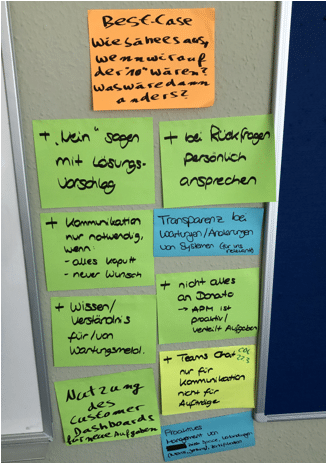 Best-Case
Wie sähe es aus,
wenn wir auf
der "10" wären?
Was wäre dann
anders?
+ „Nein" sagen
mit Lösungs-
vorschlag
+ bei Rückfragen
persönlich
ansprechen
+ Kommunikation
nur notwendig,
wenn:
- alles kaputt
- neuer Wunsch
Transparenz bei
Wartungen/Änderungen
von Systemen (für uns
relevant)
+ Wissen/
Verständnis
für/von
Wartungsmeld.
+ nicht alles
an Donato
→ APM ist
proaktiv/
verteilt Aufgaben
Nutzung
des
Customer
Dashboards
für neue Aufgaben
+ Teams Chat
nur für
Kommunikation
nicht für
Aufträge
Proaktives
Management von